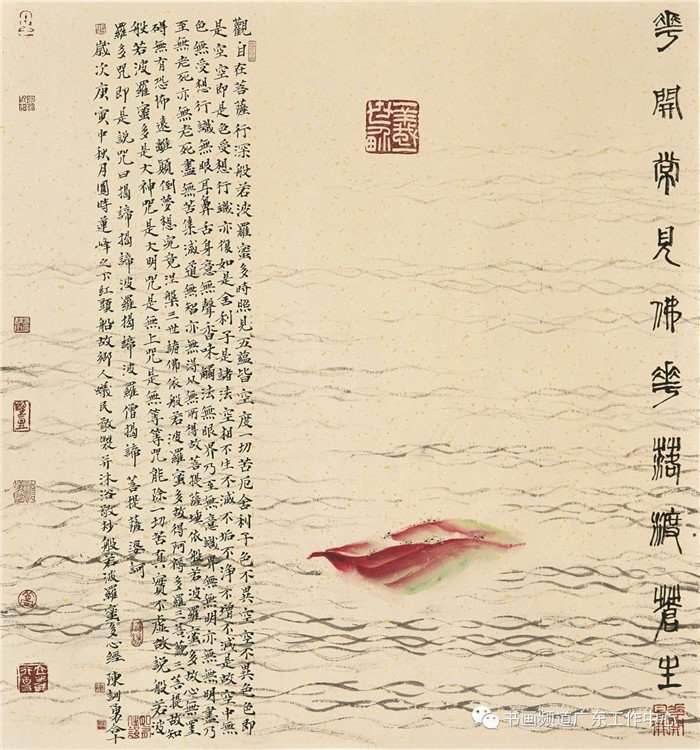 華開常見佛華落渡蒼生
觀自在菩薩行深般若波羅蜜多時照見五蘊皆空度一切苦厄舍利子色不異空空不異色色即
是空空即是色受想行識亦復如是舍利子是諸法空相不生不滅不垢不淨不增不減是故空中無
色無受想行識無眼耳鼻舌身意無聲香味觸法無眼界乃至無意識界無無明亦無無明盡乃
至無老死亦無老死盡無苦集滅道無智亦無得以無所得故菩提薩埵依般若波羅蜜多故心無罣
礙無有恐怖遠離顛倒夢想究竟涅槃三世諸佛依般若波羅蜜多故得阿耨多羅三藐三菩提故知
般若波羅蜜多是大神咒是大明咒是無上咒是無等等咒能除一切苦真實不虛故說般若波
羅多咒即是說咒曰揭諦揭諦波羅揭諦波羅僧揭諦菩提薩婆訶
歲次庚寅中秋月圓時蓮峰之下紅頭船故鄉人蟻民敬製并沐浴敬抄般若波羅蜜多心經陳訓勇合十
书画频道广东工作中心